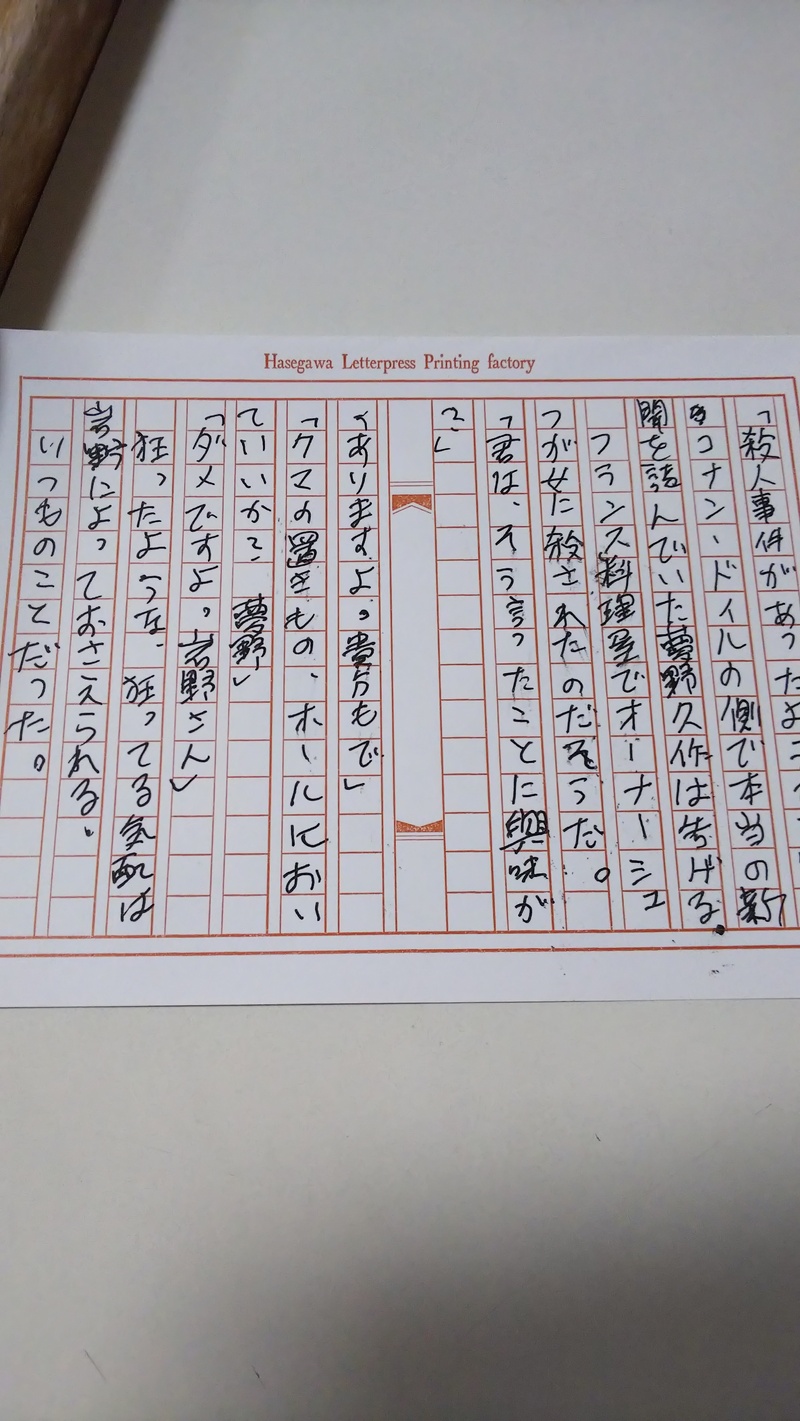 Hasegawa Letterpress Printing factory
「殺人事件があったよ
コナン・ドイルの側で本当の新
聞を読んでいた夢野久作は告げる
フランス料理屋でオーナーシェ
フが女に殺されたのだそうだ。
「君は、そう言ったことに興味が
?」
「ありますよ。貴方もで」
「クマの置きもの、ホールにおい
ていいか?夢野」
「ダメですよ。岩野さん」
狂ったような、狂ってる気配は
岩野によっておさえられる。
いつものことだった。